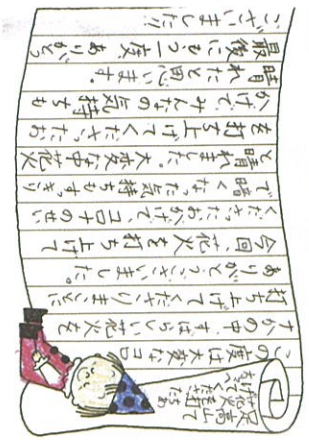 足高山で
花火を打ち
この度は大変なコロ
ナかの中、すばらしい花火を
打ち上げてくださりまことに
ありがとうございました。
今回、花火を打ち上げて
くださったおかげで、コロナのせい
で暗くなった気持ちもすっきり
と晴れました。大変な中花火
を打ち上げてくださったお
かげでみんなの気持ちも
晴れたと思います。
最後にもう一度、ありがとう
ございました!!